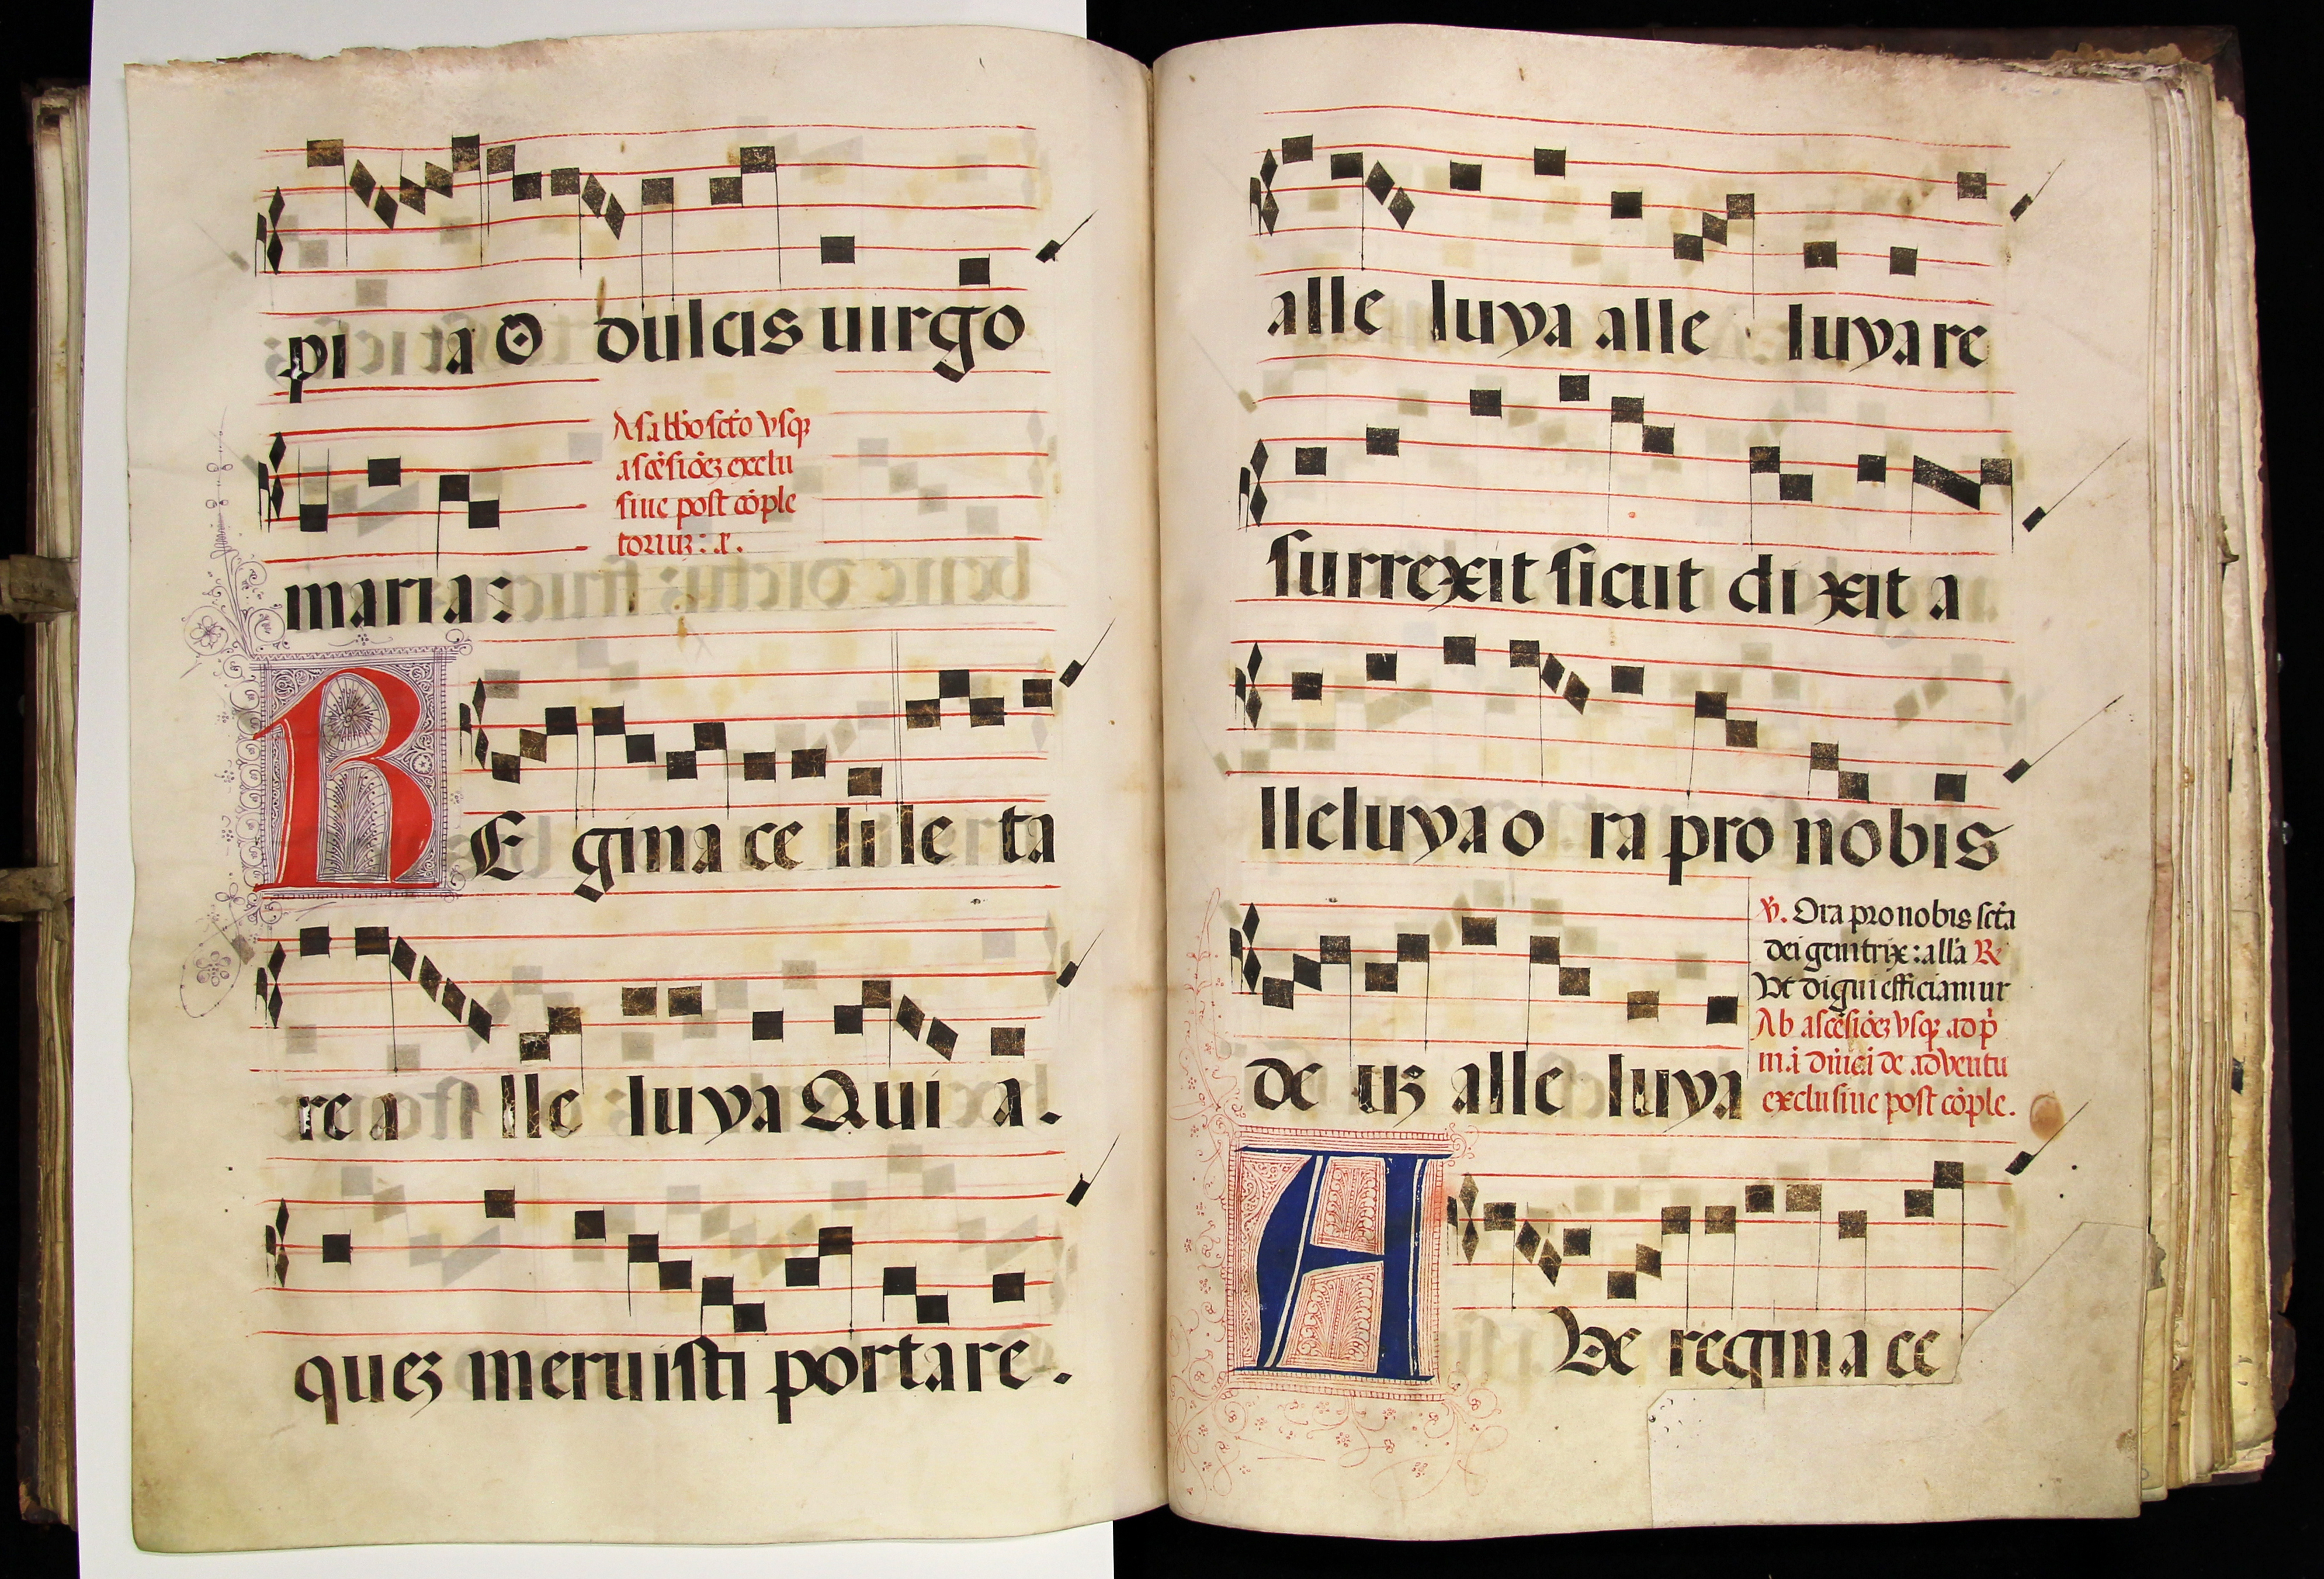 pi a O dulcis uirgo
A sabbo scto vsq
ascēsiōez exclu
siue post cōple
maria:
RE gina ce li le ta
re a lle luya Qui a.
quez meruisti portare.
alle luya alle luya re
surrexit sicut di xit a
lleluya o ra pro nobis
de uz alle luya
℣. Ora pro nobis sctā
dei genitrix: allā R
Vt digni efficiamur
Ab ascēsiōez vsq ad p̄
de adventu
exclusiue post cōple.
AVe regina ce